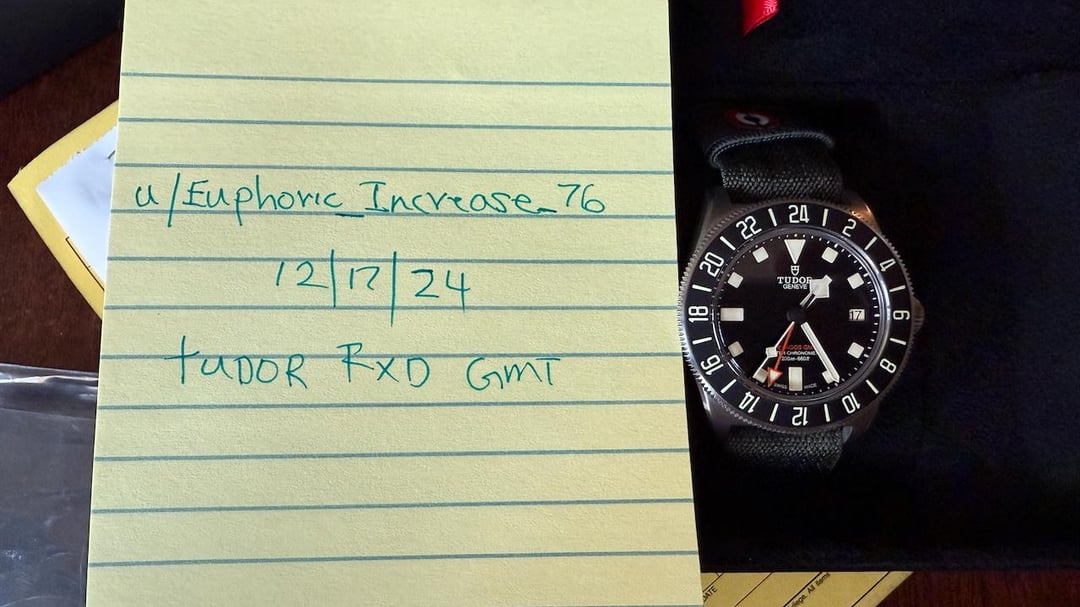 u/Euphoric_Increase_76
12/17/24
tUDOR FXD GMT
24
2
4
6
8
10
12
14
16
18
20
22
TUDOR
GENEVE
17
200m-660ft
SWISS MADE
DATE